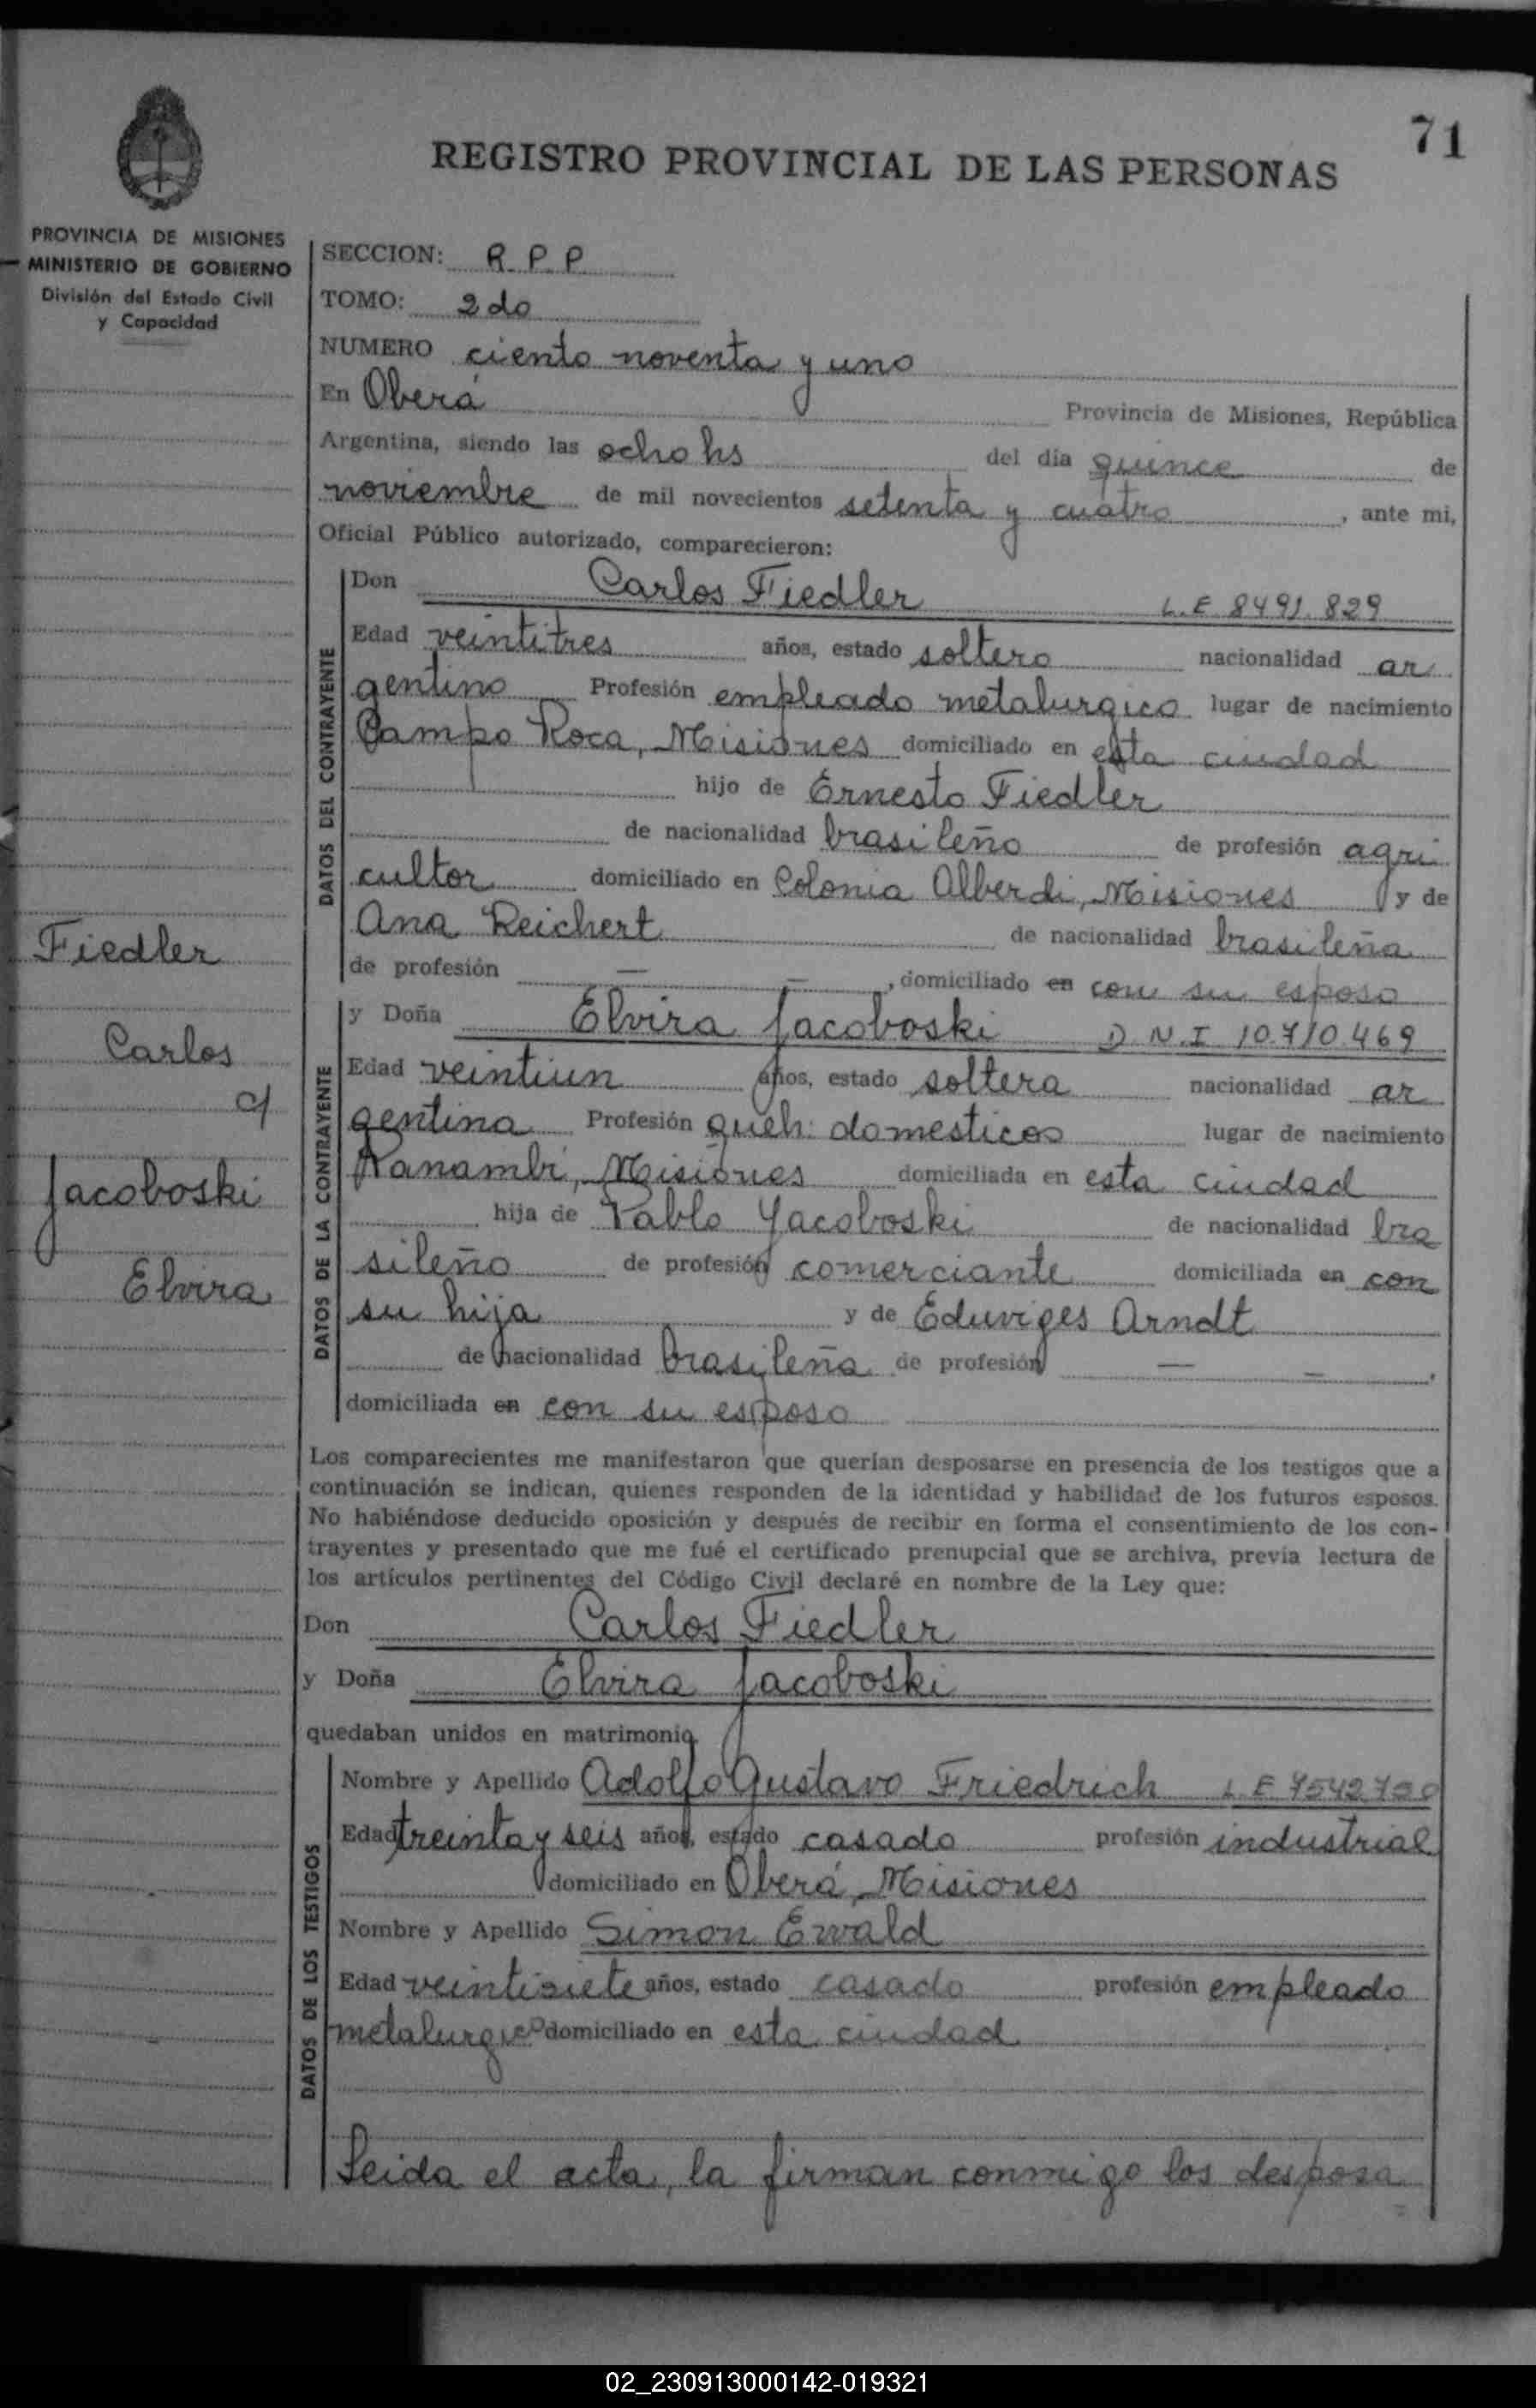 71
REGISTRO PROVINCIAL DE LAS PERSONAS
PROVINCIA DE MISIONES
MINISTERIO DE GOBIERNO
División del Estado Civil
y Capacidad
SECCION: R. P. P.
TOMO: 2do
NUMERO ciento noventa y uno
En Oberá Provincia de Misiones, República
Argentina, siendo las ocho hs del día quince de
noviembre de mil novecientos setenta y cuatro, ante mi,
Oficial Público autorizado, comparecieron:
DATOS DEL CONTRAYENTE
Don Carlos Fiedler L.E 8491.829
Edad veintitres años, estado soltero nacionalidad ar
gentino Profesión empleado metalurgico lugar de nacimiento
Campo Roca, Misiones domiciliado en esta ciudad
hijo de Ernesto Fiedler
de nacionalidad brasileño de profesión agri
cultor domiciliado en Colonia Alberdi, Misiones y de
Ana Reichert de nacionalidad brasileña
de profesión — —, domiciliado en con su esposo
DATOS DE LA CONTRAYENTE
y Doña Elvira Jacoboski D.N.I 10.710.469
Edad veintiun años, estado soltera nacionalidad ar
gentina Profesión queh: domesticos lugar de nacimiento
Panambi, Misiones domiciliada en esta ciudad
hija de Pablo Yacoboski de nacionalidad bra
sileño de profesión comerciante domiciliada en con
su hija y de Eduviges Arndt
de nacionalidad brasileña de profesión — —,
domiciliada en con su esposo
Fiedler
Carlos
c/
Jacoboski
Elvira
Los comparecientes me manifestaron que querían desposarse en presencia de los testigos que a
continuación se indican, quienes responden de la identidad y habilidad de los futuros esposos.
No habiéndose deducido oposición y después de recibir en forma el consentimiento de los con-
trayentes y presentado que me fué el certificado prenupcial que se archiva, previa lectura de
los artículos pertinentes del Código Civil declaré en nombre de la Ley que:
Don Carlos Fiedler
y Doña Elvira Jacoboski
quedaban unidos en matrimonio.
DATOS DE LOS TESTIGOS
Nombre y Apellido Adolfo Gustavo Friedrich L.E
Edad treinta y seis años, estado casado profesión industrial
domiciliado en Oberá, Misiones
Nombre y Apellido Simon Ewald
Edad veintisiete años, estado casado profesión empleado
metalurgico domiciliado en esta ciudad
Leida el acta, la firman conmigo los desposa
02_230913000142-019321